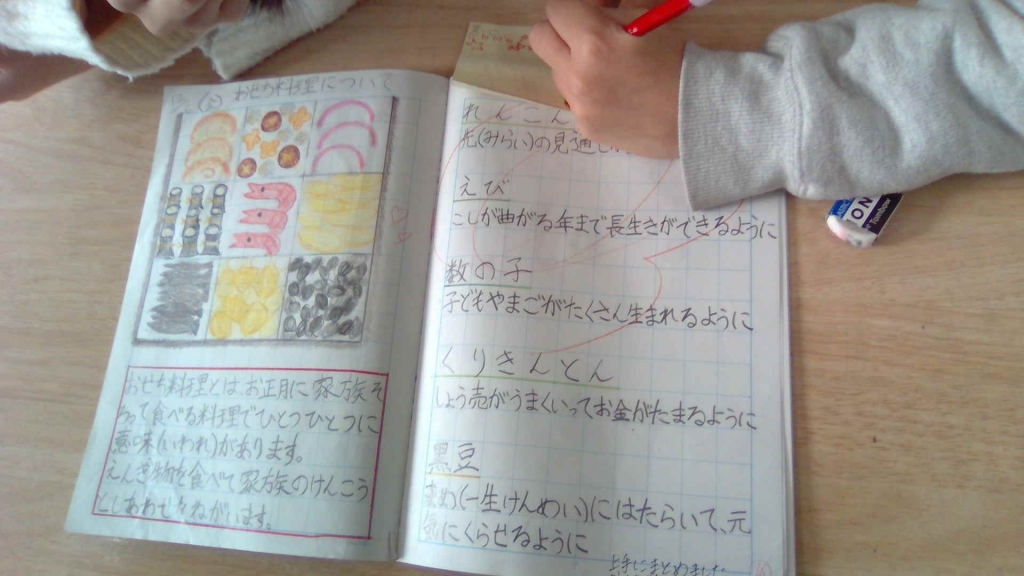 おせち料理について
おせち料理とは、お正月に家族そ
ろって食べる料理でひとつひとつに
意味(いわれ)があります。
えんぎ物を食べて家族のけんこう
としあわせをねがいます。
れんこん
先(みらい)の見通し
えび
こしが曲がる年まで長生きができるように
数の子
子どもやまごがたくさん生まれるように
くりきんとん
しょう売がうまくいってお金がたまるように
黒豆
まめ(一生けんめい)にはたらいて、元
気にくらせるように
上手にまとめました